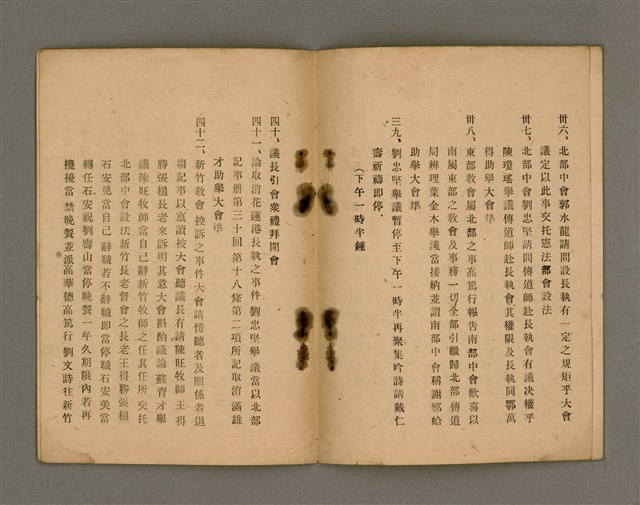 卅六、北部中會郭水龍請問設長執有一定之規矩乎大會
議定以此事交托憲法部會設法
卅七、北部中會劉忠堅請問傳道師赴長執會有議决權乎
陳瓊瑤舉議傳道師赴長執會其權限及長執同鄧萬
得助舉大會準
卅八、東部敎會屬北部之事高篤行報告南部中會歡喜以
南屬東部之敎會及事務一切全部引繼歸北部傳道
局辨理葉金木舉議當接納並謂南部中會稱謝鄭蛤
助舉大會準
三九、劉忠堅舉議暫停至下午一時半再聚集吟詩請戴仁
壽祈禱即停
(下午一時半鐘
四十、議長引會衆禮拜開會
四十一、論取消花蓮港長執之事件劉忠堅舉議當以北部
記事册第三十回第十八條第二項所記取消滿雄
才助舉大會準
四十二、新竹敎會控訴之事件大會請傍聽者及關係者退
塲記事以禀讀被大會聽議長有請陳旺牧師王得
勝張槌長老來訴明其意大會斟酌議論蘇育才舉
議陳旺牧師當自己辭新竹牧師之任其任所交托
北部中會設法新竹長老督會之長老王得勝張槌
石安免當自己辭職若不辭職即當停職石安美當
轉任石安祝劉壽山當停晚餐一年久期限內若再
攪擾當禁晚餐並派高華德高篤行劉文詩往新竹